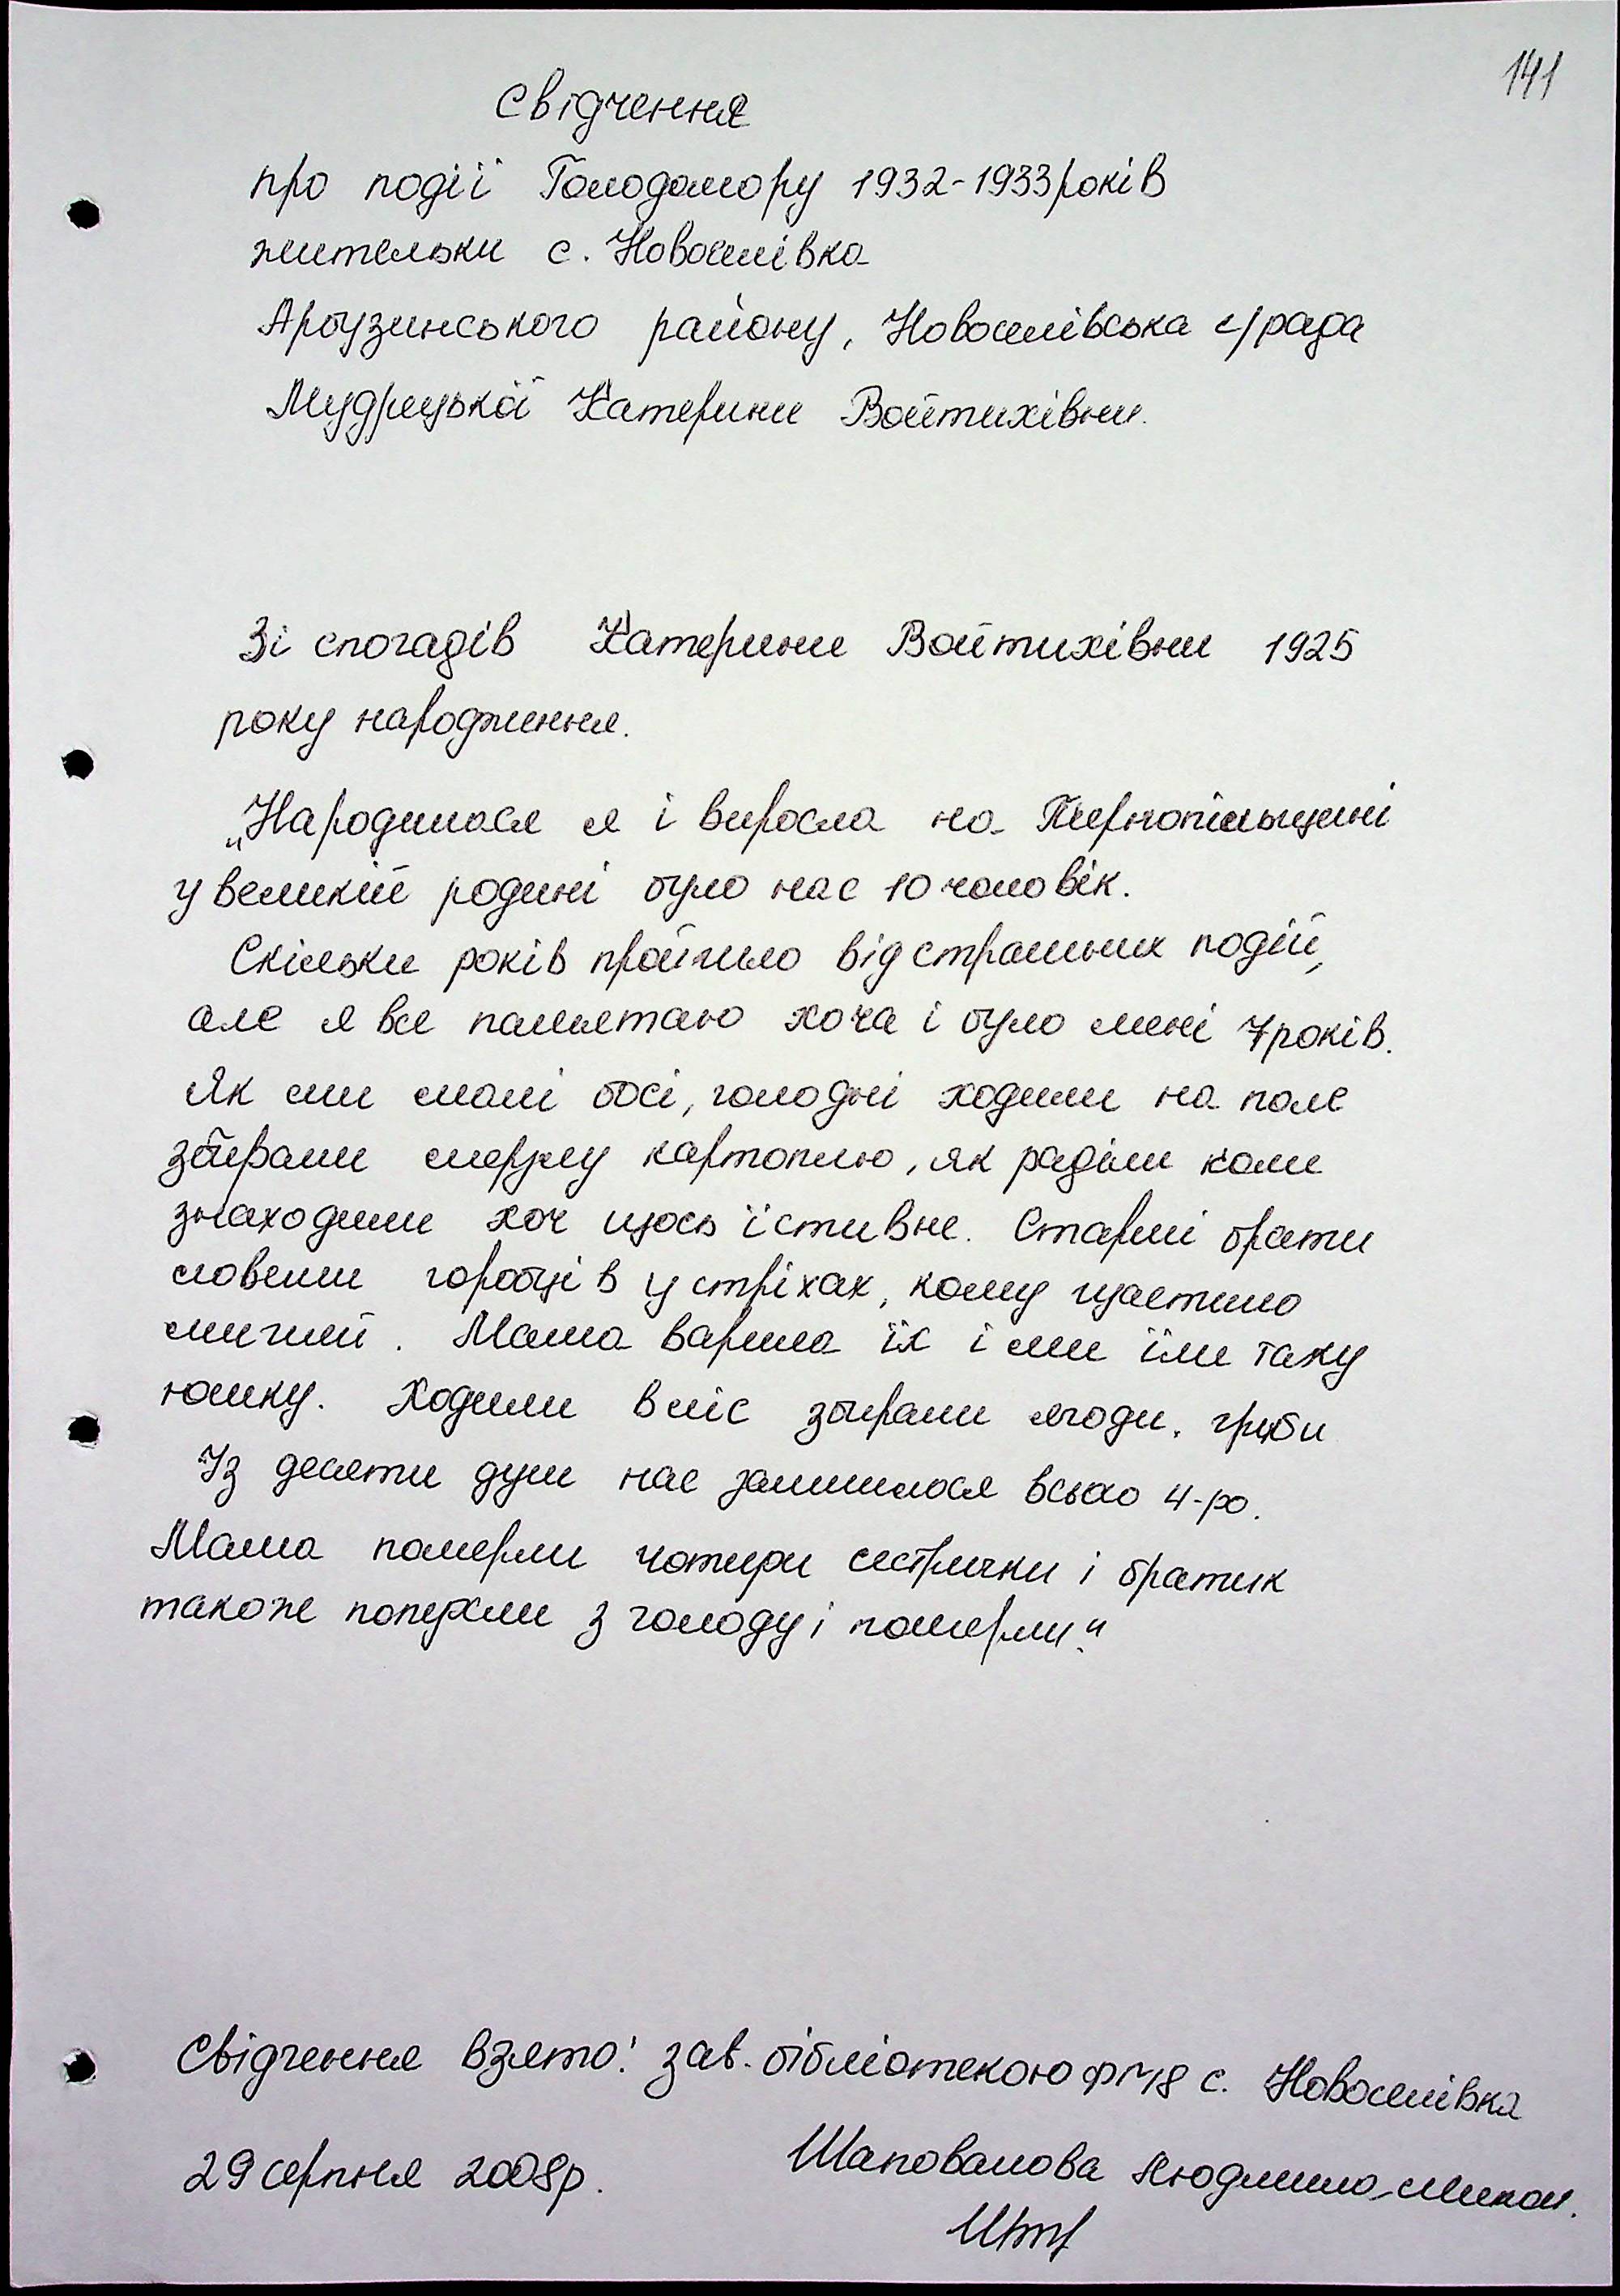 141
Свідчення
про події Голодомору 1932-1933 років
жительки с. Новоселівка
Арбузинського району, Новоселівська с/рада
Мудрицької Катерини Войтихівни.
Зі спогадів Катерини Войтихівни 1925
року народження.
„Народилася я і виросла на Тернопільщині
у великій родині було нас 10 чоловік.
Скільки років пройшло від страшних подій,
але я все памятаю хоча і було мені 7 років.
Як ми малі босі, голодні ходили на поле
збирали мерзлу картоплю, як раділи коли
знаходили хоч щось їстивне. Старші брати
ловили горобців у стріхах, кому щастило
мишей. Мама варила їх і ми їли таку
юшку. Ходили в ліс збирали ягоди, гриби
Із десяти душ нас залишилося всього 4-ро.
Мама померли чотири сестрички і братик
також попухли з голоду і померли."
Свідчення взято: зав. бібліотекою ф №18 с. Новоселівка
29 серпня 2008р. Шаповалова Людмила Микол.